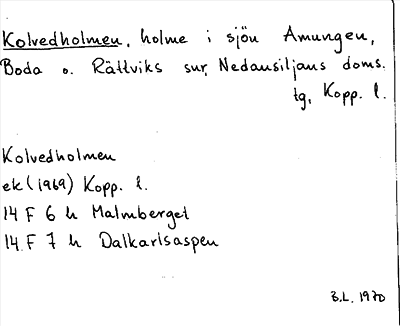 Kolvedholmen, holme i sjön Amungen,
Boda o. Rättviks snr, Nedansiljans doms.
tg, Kopp. l.
Kolvedholmen
ek (1969) Kopp. l.
14 F 6 h Malmberget
14 F 7 h Dalkarlsaspen
B.L. 1970